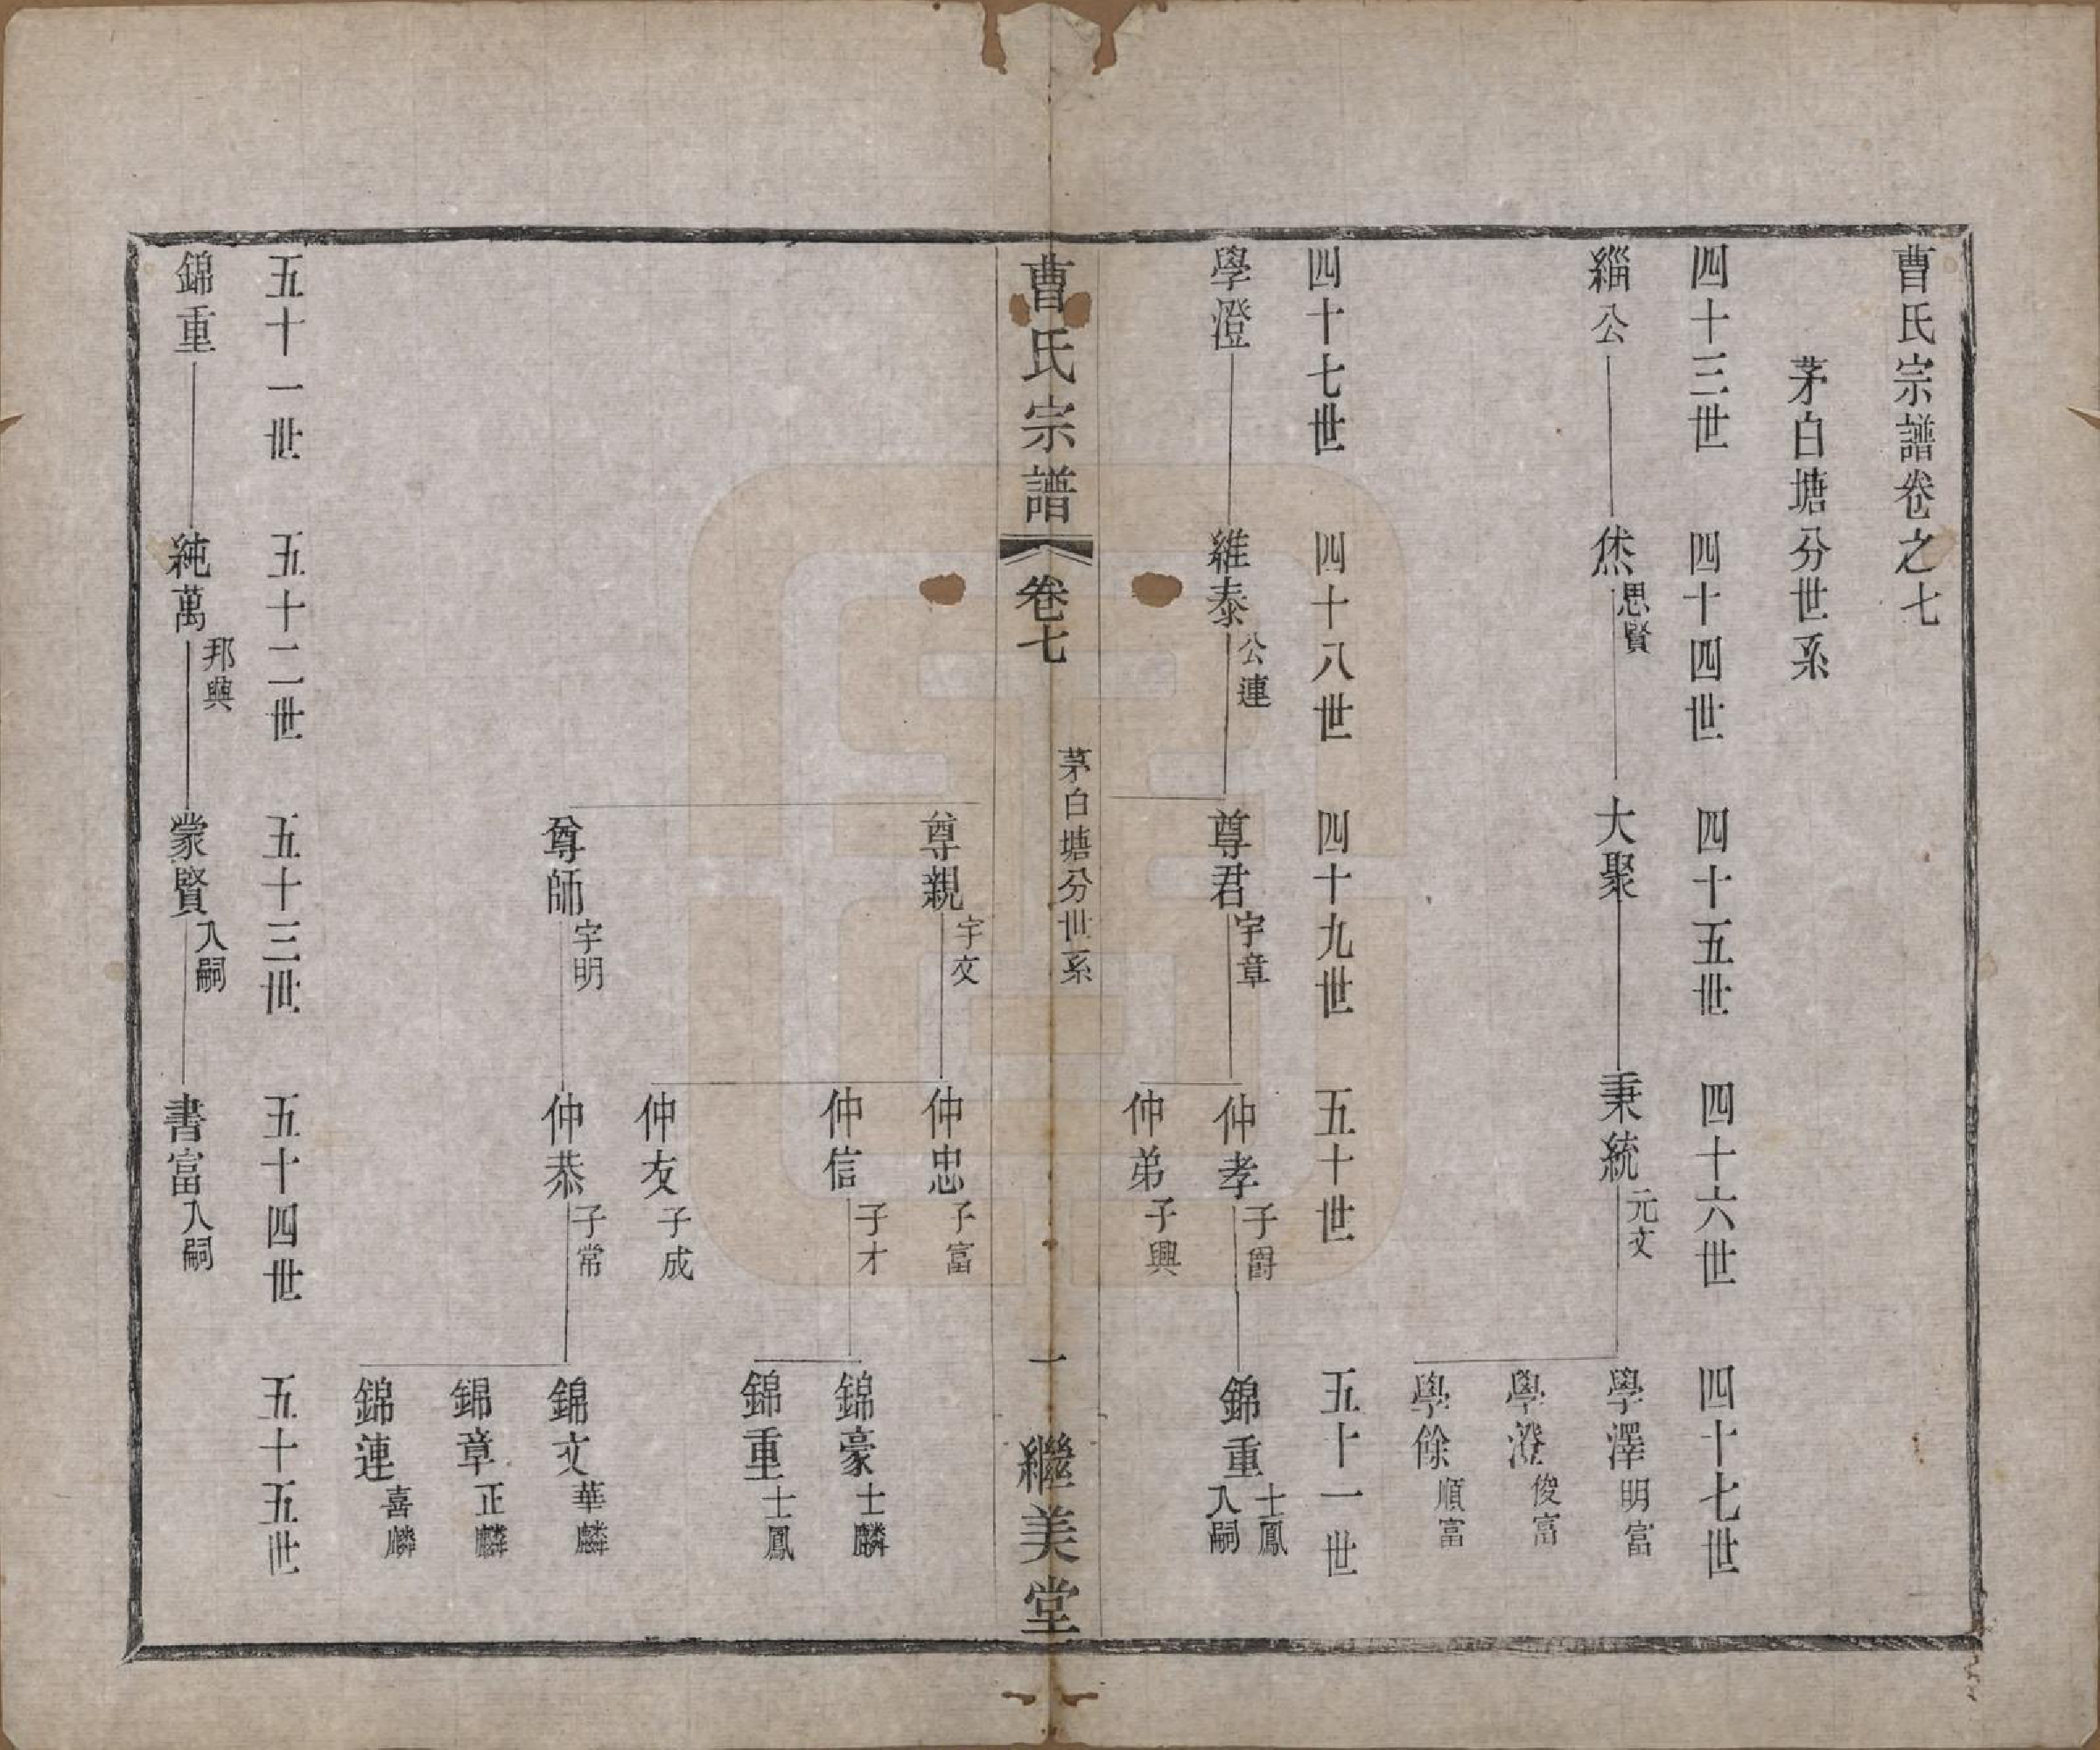 曹氏宗譜卷之七
茅白塘分世系
四十三世 四十四世 四十五世 四十六世 四十七世
緇公 烋思賢 大聚 秉統元文 學澤明富
學澄俊富
學餘順富
四十七世 四十八世 四十九世 五十世 五十一世
學澄 維泰公連 尊君宇章 仲孝子爵 錦重士鳳入嗣
仲弟子興
曹氏宗譜 卷七 茅白塘分世系 一 繼美堂
尊親宇文 仲忠子富
仲信子才 錦豪士麟
錦重士鳳
仲友子成
尊師宇明 仲恭子常 錦文華麟
錦章正麟
錦連喜麟
五十一世 五十二世 五十三世 五十四世 五十五世
錦重 純萬邦興 蒙賢入嗣 書富入嗣